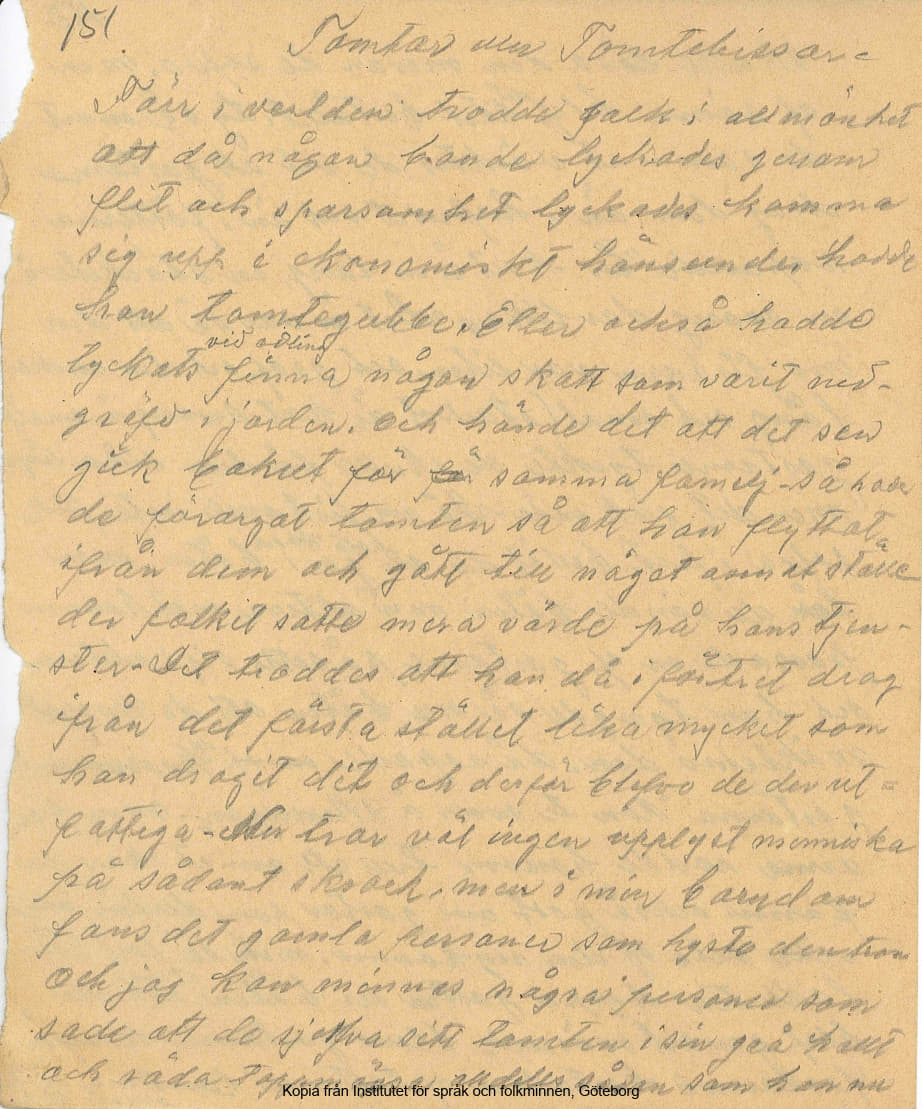 151.
Tomtar eller Tomtebissar =
Förr i verlden trodde folk i allmänhet
att då någon bonde lyckades genom
flit och sparsamhet lyckades komma
sig upp i ekonomiskt hänseende hade
han tomtegubbe. Eller också hadde
vid odling
lyckats finna någon skatt som varit ned-
gräfd i jorden. Och hände det att det sen
gick bakut för samma familj - så hade
de förargat tomten så att han flyttat
ifrån dem och gått till något annat ställe
der folket satte mera värde på hans tjen-
ster. Det troddes att han då i förtret drog
ifrån det första stället lika mycket som
han dragit dit och derför blefvo de der ut=
fattiga - Nu tror väl ingen upplyst menniska
på sådant skrock, men i min barndom
fans det gamla personer som hyste den tron
och jag kan minnas några personer som
sade att de sjelfva sett tomten i sin grå hatt
och röda som han nu
Kopia från Institutet för språk och folkminnen, Göteborg